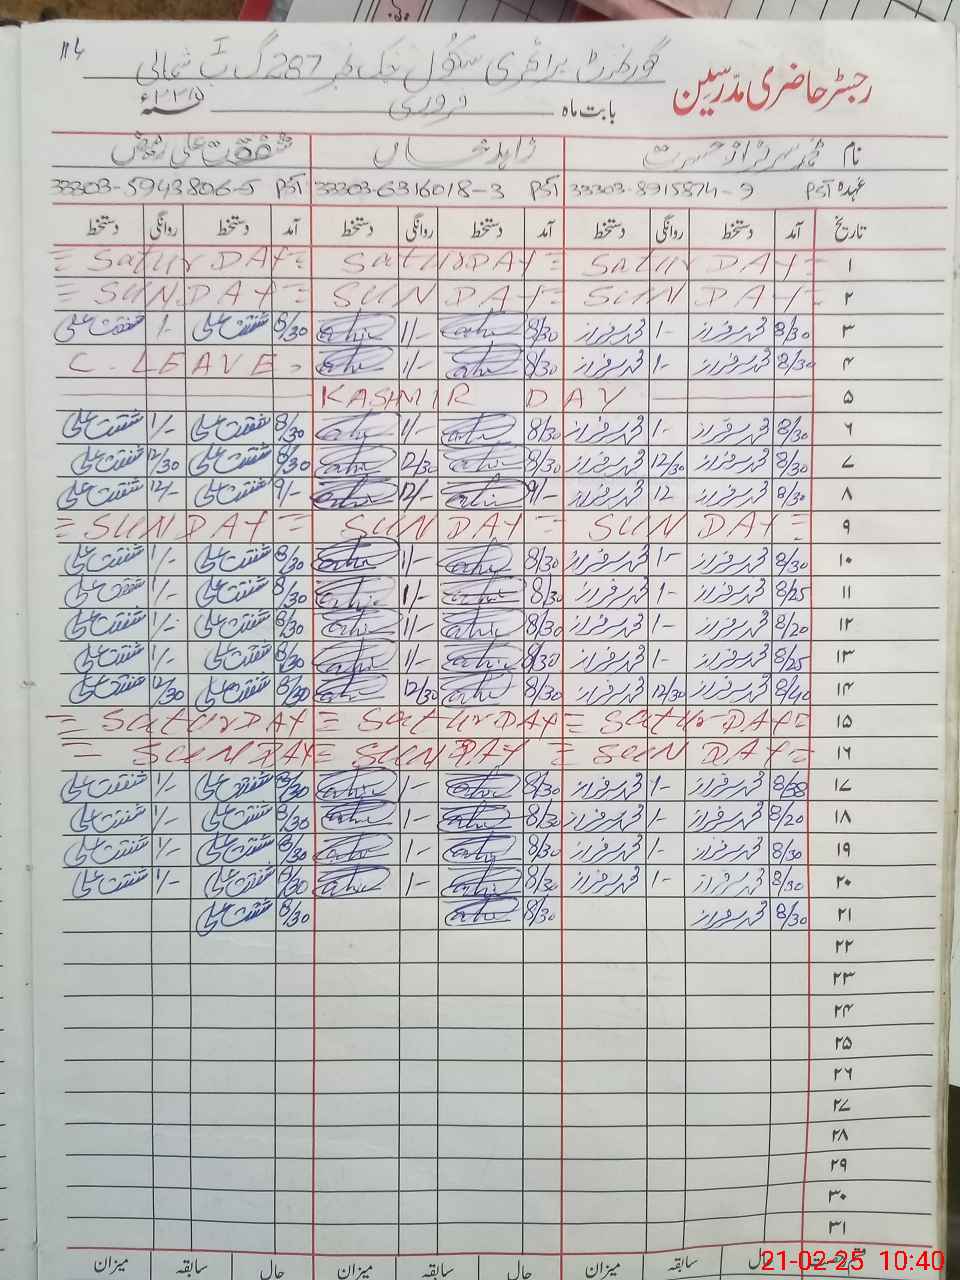 114
گورنمنٹ پرائمری سکول چک نمبر 287 گ ب I شمالی
رجسٹر حاضری مدرسین
بابت ماہ فروری ۲۰۲۵ء
نام محمد سرفراز زاہد خاں شفقت علی
عہدہ PST 33303-8915874-9 PST 33303-6316018-3 PST 33303-5943806-5
تاریخ آمد دستخط روانگی دستخط آمد دستخط روانگی دستخط آمد دستخط روانگی دستخط
۱ = SaturDAY = SaturDAY = SaturDAY =
۲ = SUNDAY = SUNDAY = SUNDAY =
۳ 8/30 محمد سرفراز 1- محمد سرفراز 8/30 1/- 8/30 شفقت علی 1- شفقت علی
۴ 8/30 محمد سرفراز 1- محمد سرفراز 8/30 1/- C. LEAVE
۵ KASHMIR DAY
۶ 8/30 محمد سرفراز 1- محمد سرفراز 8/30 1/- 8/30 شفقت علی 1/- شفقت علی
۷ 8/30 محمد سرفراز 12/30 محمد سرفراز 8/30 12/30 8/30 شفقت علی 12/30 شفقت علی
۸ 8/30 محمد سرفراز 12 محمد سرفراز 9/- 12/- 9/- شفقت علی 12/- شفقت علی
۹ = SUNDAY = SUNDAY = SUNDAY =
۱۰ 8/30 محمد سرفراز 1- محمد سرفراز 8/30 1/- 8/30 شفقت علی 1/- شفقت علی
۱۱ 8/25 محمد سرفراز 1- محمد سرفراز 8/30 1/- 8/30 شفقت علی 1/- شفقت علی
۱۲ 8/20 محمد سرفراز 1- محمد سرفراز 8/30 1/- 8/30 شفقت علی 1/- شفقت علی
۱۳ 8/25 محمد سرفراز 1- محمد سرفراز 8/30 1/- 8/30 شفقت علی 1/- شفقت علی
۱۴ 8/40 محمد سرفراز 12/30 محمد سرفراز 8/30 12/30 8/30 شفقت علی 12/30 شفقت علی
۱۵ = SaturDAY = SaturDAY = SaturDAY =
۱۶ = SUNDAY = SUNDAY = SUNDAY =
۱۷ محمد سرفراز 1- محمد سرفراز 8/30 1- 8/30 شفقت علی 1/- شفقت علی
۱۸ 8/20 محمد سرفراز 1- محمد سرفراز 8/30 1- 8/30 شفقت علی 1/- شفقت علی
۱۹ 8/30 محمد سرفراز 1- محمد سرفراز 8/30 1- 8/30 شفقت علی 1/- شفقت علی
۲۰ 8/30 محمد سرفراز 1- محمد سرفراز 8/30 1- 8/30 شفقت علی 1/- شفقت علی
۲۱ 8/30 محمد سرفراز 8/30 8/30 شفقت علی
۲۲
۲۳
۲۴
۲۵
۲۶
۲۷
۲۸
۲۹
۳۰
۳۱
حال سابقہ میزان حال سابقہ میزان حال سابقہ میزان
21-02-25 10:40